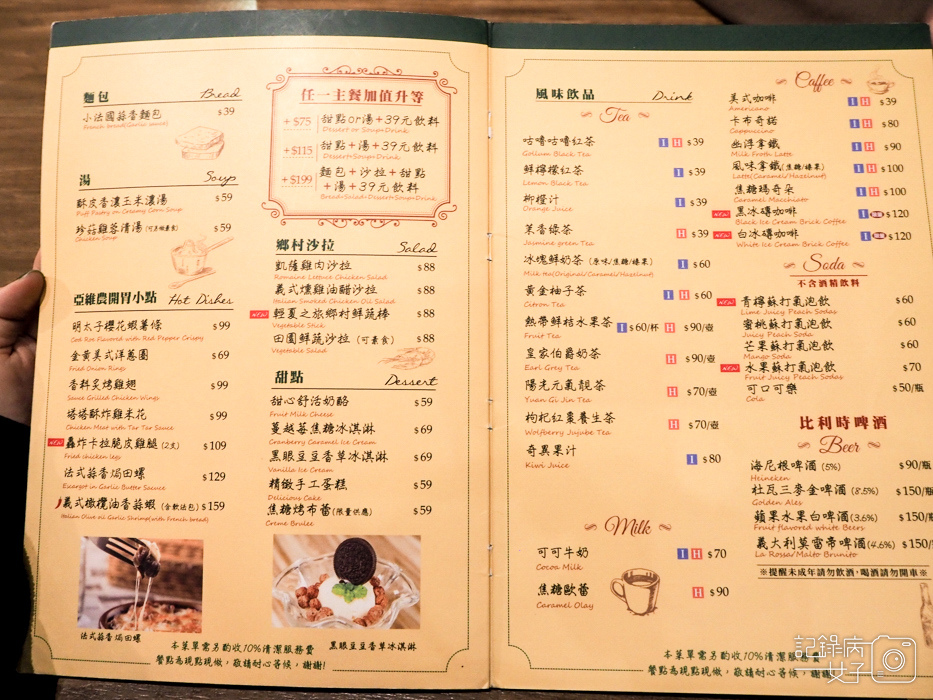 麵包 Bread
小法國蒜香麵包 $39
French bread(Garlic sauce)
湯 Soup
酥皮香濃玉米濃湯 $59
Puff Pastry on Creamy Corn Soup
珍菇雞蓉清湯(可素食) $59
Chicken Soup
亞維農開胃小點 Hot Dishes
明太子櫻花蝦薯條 $99
Cod Roe Flavored with Red Pepper Crispy
金黃美式洋蔥圈 $69
Fried Onion Rings
香料炙烤雞翅 $99
Sauce Grilled Chicken Wings
塔塔酥炸雞米花 $99
Chicken Meat with Tar Tar Sauce
NEW 轟炸卡拉脆皮雞腿(2支) $109
Fried chicken legs
法式蒜香焗田螺 $129
Escargot in Garlic Butter Saucce
義式橄欖油香蒜蝦(含軟法包) $159
Italian Olive oil Garlic Shrimp(with French bread)
法式蒜香焗田螺
任一主餐加值升等
+$75 甜點or湯+39元飲料
Dessert or Soup+Drink
+$115 甜點+湯+39元飲料
Dessert+Soup+Drink
+$199 麵包+沙拉+甜點
+湯+39元飲料
Bread+Salad+Dessert+Soup+Drink
鄉村沙拉 Salad
凱薩雞肉沙拉 $88
Romaine Lettuce Chicken Salad
義式燻雞油醋沙拉 $88
Italian Smoked Chicken Oil Salad
NEW 輕夏之旅鄉村鮮蔬棒 $88
Vegetable Stick
田園鮮蔬沙拉(可素食) $88
Vegetable Salad
甜點 Dessert
甜心舒活奶酪 $59
Fruit Milk Cheese
蔓越莓焦糖冰淇淋 $69
Cranberry Caramel Ice Cream
黑眼豆豆香草冰淇淋 $69
Vanilla Ice Cream
精緻手工蛋糕 $59
Delicious Cake
焦糖烤布蕾(限量供應) $59
Creme Brulee
黑眼豆豆香草冰淇淋
本菜單需另酌收10%清潔服務費
餐點為現點現做，敬請耐心等候，謝謝!
風味飲品 Drink
Tea
咕嚕咕嚕紅茶 I H $39
Gollum Black Tea
鮮檸檬紅茶 I $39
Lemon Black Tea
柳橙汁 I $39
Orange Juice
茉香綠茶 H $39
Jasmine green Tea
冰塊鮮奶茶(原味/焦糖/榛果) I $60
Milk tea(Original/Caramel/Hazelnut)
黃金柚子茶 I H $60
Citron Tea
熱帶鮮桔水果茶 I $60/杯 H $90/壺
Fruit Tea
皇家伯爵奶茶 H $90/壺
Earl Grey Tea
陽光元氣靚茶 H $70/壺
Yuan Gi Jin Tea
枸杞紅棗養生茶 H $70/壺
Wolfberry Jujube Tea
奇異果汁 I $80
Kiwi Juice
Milk
可可牛奶 I H $70
Cocoa Milk
焦糖歐蕾 H $90
Caramel Olay
Coffee
美式咖啡 I H $39
Americano
卡布奇諾 I H $80
Cappuccino
幽浮拿鐵 I H $90
Milk Froth Latte
風味拿鐵(焦糖/榛果) I H $100
Latte(Caramel/Hazelnut)
焦糖瑪奇朵 I H $100
Caramel Macchiato
NEW 黑冰磚咖啡 I $120
Black Ice Cream Brick Coffee
NEW 白冰磚咖啡 I $120
White Ice Cream Brick Coffee
Soda
不含酒精飲料
NEW 青檸蘇打氣泡飲 $60
Lime Juicy Peach Sodas
蜜桃蘇打氣泡飲 $60
Juicy Peach Soda
芒果蘇打氣泡飲 $60
Mango Soda
NEW 水果蘇打氣泡飲 $70
Fruit Juicy Peach Sodas
可口可樂 $50/瓶
Cola
比利時啤酒
Beer
海尼根啤酒(5%) $90/瓶
Heineken
杜瓦三麥金啤酒(8.5%) $150/瓶
Golden Ales
蘋果水果白啤酒(3.6%) $150/瓶
Fruit flavored white Beers
義大利莫雷帝啤酒(4.6%) $150/
La Rossa/Malto Brunito
※提醒未成年請勿飲酒，喝酒請勿開車※
本菜單需另酌收10%清潔服務費
餐點為現點現做，敬請耐心等候，謝謝
記錄病女子